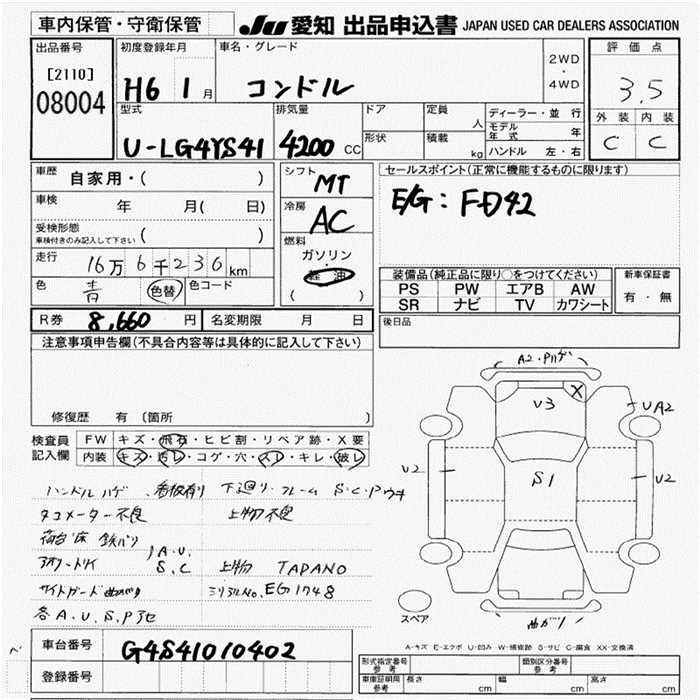 車内保管・守衛保管 JU 愛知 出品申込書 JAPAN USED CAR DEALERS ASSOCIATION
出品番号 初度登録年月 車名・グレード 2WD・4WD 評価点
[2110] H6 1月 コンドル 3.5
08004 外装 内装
型式 排気量 ドア 定員 人 ディーラー・並行 C C
U-LG4YS41 4200 CC 形状 積載 kg モデル年式 年
ハンドル 左・右
車歴 自家用・( ) シフト MT セールスポイント(正常に機能するものに限ります)
車検 年 月( 日) 冷房 AC E/G: FD42
受検形態 ( )
車検付きのみ記入して下さい
走行 16万6千236km 燃料 ガソリン・軽油 ( )
色 青 色替 色コード
装備品(純正品に限り○をつけてください) 新車保証書
PS PW エアB AW 有・無
SR ナビ TV カワシート
R券 8,660円 名変期限 月 日 後日品
注意事項申告欄(不具合内容等は具体的に記入して下さい)
修復歴 有(箇所
検査員記入欄 FW キズ・飛石・ヒビ割・リペア跡・X要
内装 キズ・汚レ・コゲ・穴・スレ・キレ・破レ
ハンドルハゲ 看板有り 下廻り・フレーム S.C.P
タコメーター不良 上物不良
荷台床 鉄バリ
A.U.
S.C 上物 TADANO
サイドガード曲がり シリアルNo. EG1748
各A.U.S.P
車台番号 G4S41010402
登録番号
A2・Pハゲ
V3 X UA2
U2 S1 U2
スペア 曲がり
A-キズ E-エクボ U-凹み W-補修跡 S-サビ C-腐食 XX-交換済
型式指定番号 参考 類別区分番号 参考
車庫証明用 参考 長さ cm 幅 cm 高さ cm